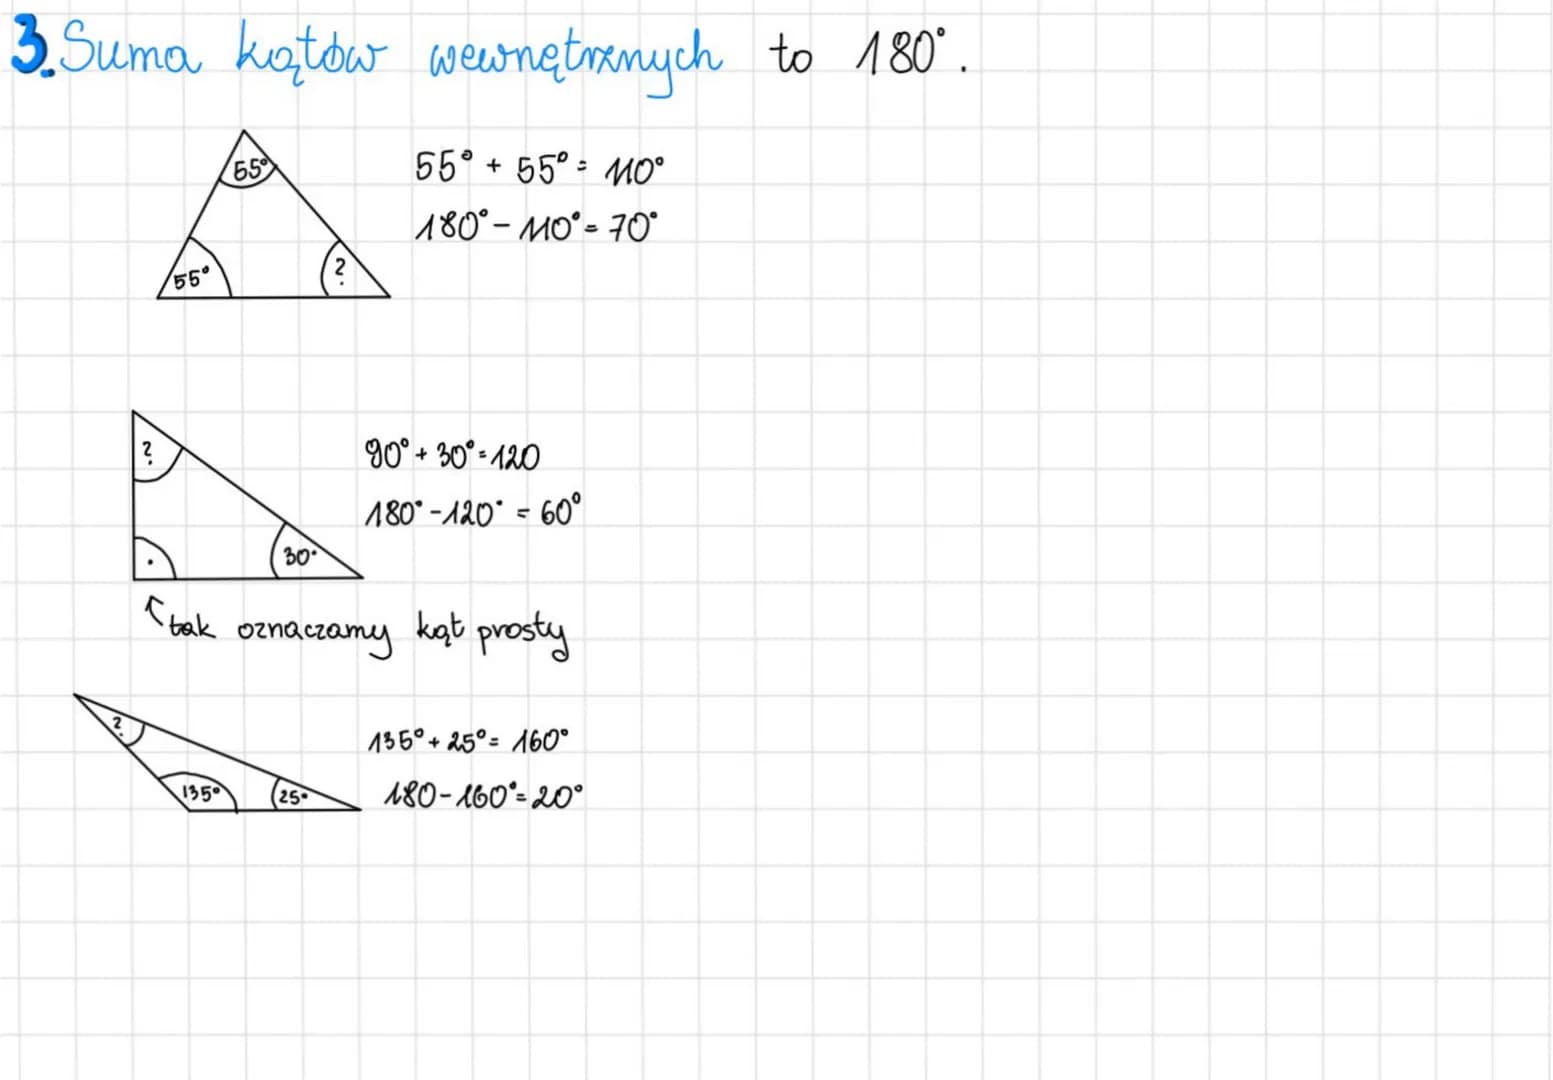 3. Suma kątów wewnętrznych to 180°.
55°
55°
?
55° + 55° = 110°
180° - 110° = 70°
?
30°
90° + 30° = 120
180° - 120° = 60°
tak oznaczamy kąt prosty
?
135°
25°
135° + 25° = 160°
180 - 160° = 20°